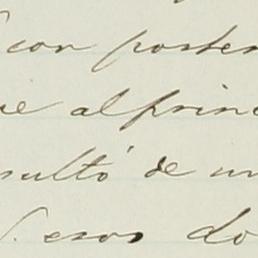 con poster
ue al princ
sultó de un
esos do